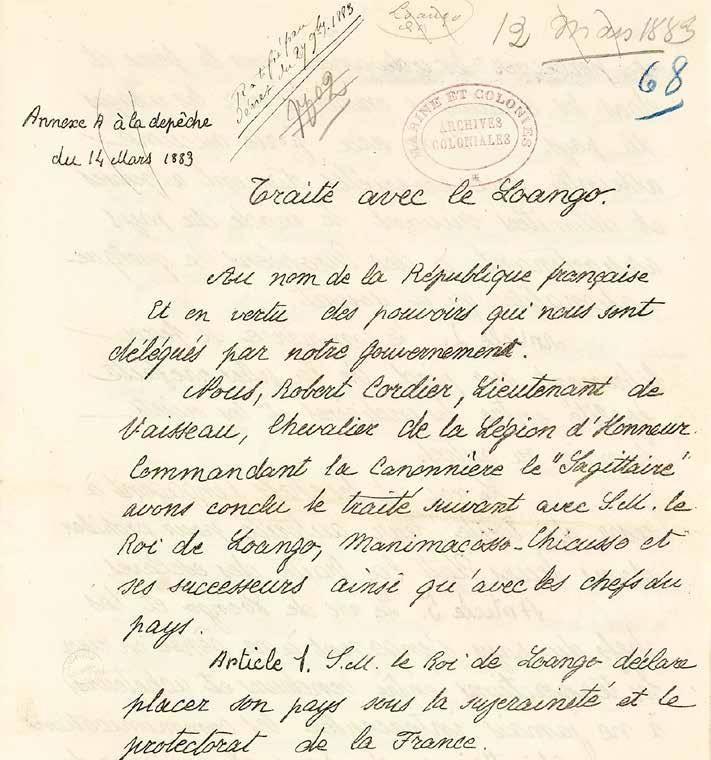 Loango
12 Mars 1883
Ratifié par
Décret du 27 9bre 1883
68
Annexe A à la depêche
du 14 Mars 1883
MARINE ET COLONIES
ARCHIVES
COLONIALES
Traité avec le Loango.
Au nom de la République française
Et en vertu des pouvoirs qui nous sont
délégués par notre Gouvernement.
Nous, Robert Cordier, Lieutenant de
Vaisseau, Chevalier de la Légion d'Honneur
Commandant la Canonnière le "Sagittaire"
avons conclu le traité suivant avec S.M. le
Roi de Loango, Manimacosso-Chicusso et
ses successeurs ainsi qu'avec les chefs du
pays.
Article 1. S.M. le Roi de Loango déclare
placer son pays sous la suzeraineté et le
protectorat de la France.